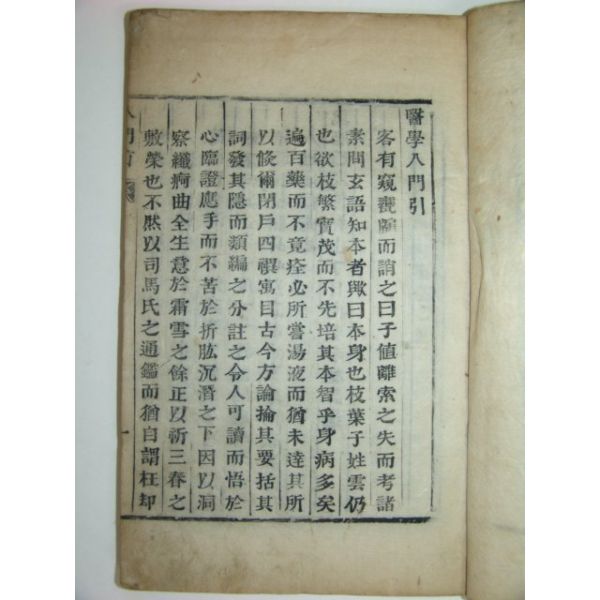 醫學入門引
客有窺覩願而誚之曰子值離索之失而考諸
素問玄語知本者歟曰本身也枝葉子姓雲仍
也欲枝繁實茂而不先培其本智乎身病多矣
遍百藥而不竟痊必所嘗湯液而猶未達其所
以倏爾閉戶四禩寓目古今方論掄其要括其
詞發其隱而類編之分註之令人可讀而悟於
心臨證應手而不苦於折肱沉潛之下因以洞
察纖痾曲全生意於霜雪之餘正以祈三春之
敷榮也不然以司馬氏之通鑑而猶自謂枉却
入門
一